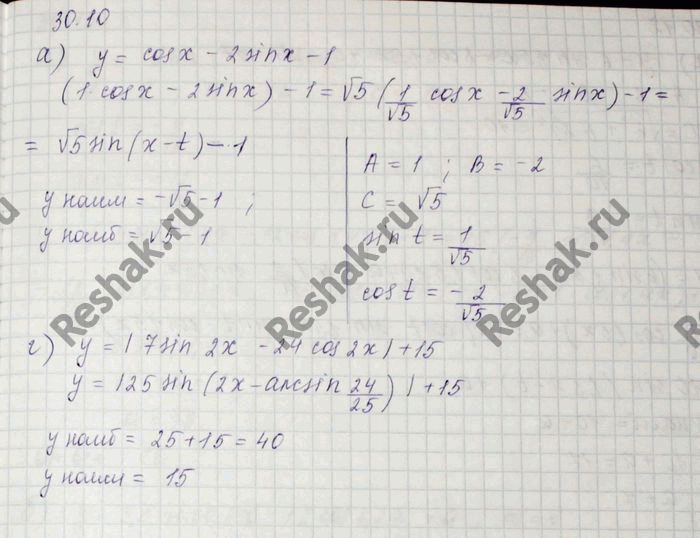 30.10
а) y = cosx - 2sinx - 1
(1 cosx - 2sinx) - 1 = √5 (1/√5 cosx - 2/√5 sinx) - 1 =
= √5 sin(x-t) - 1
y наим = -√5 - 1 ;
y наиб = √5 - 1
A = 1 ; B = -2
C = √5
sin t = 1/√5
cos t = -2/√5
г) y = |7sin 2x - 24 cos 2x| + 15
y = |25 sin (2x - arcsin 24/25)| + 15
y наиб = 25 + 15 = 40
y наим = 15
Reshak.ru
Reshak.ru
Reshak.ru
Reshak.ru
Reshak.ru